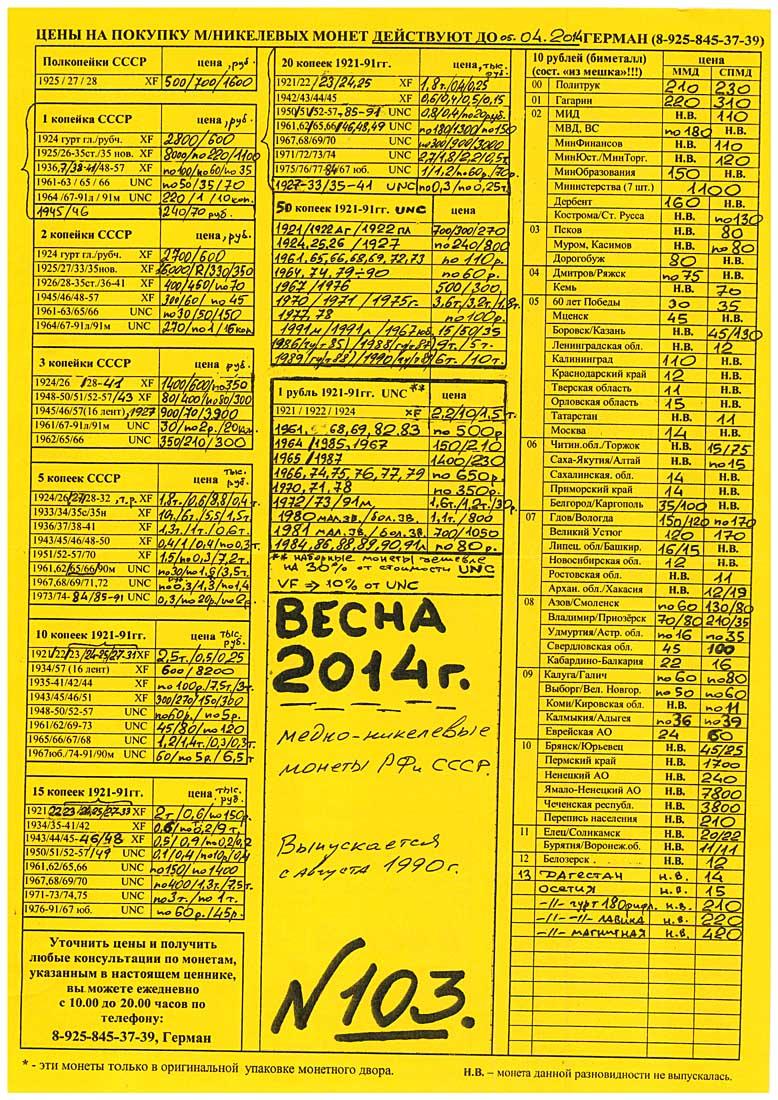 ЦЕНЫ НА ПОКУПКУ М/НИКЕЛЕВЫХ МОНЕТ ДЕЙСТВУЮТ ДО 05.04.2014 ГЕРМАН (8-925-845-37-39)
Полкопейки СССР цена, руб.
1925 / 27 / 28 XF 500/700/1600
1 копейка СССР цена, руб.
1924 гурт гл./рубч. XF 2800/600
1925/26-35ст./35 нов. XF 8000/по220/1100
1936,7/38-41/48-57 XF по100/по60/по 35
1961-63 / 65 / 66 UNC по50/35/70
1964 /67-91л / 91м UNC 220/1/10коп.
1945/46 240/70 руб.
2 копейки СССР цена, руб.
1924 гурт гл./рубч. XF 2700/600
1925/27/33/35нов. XF /R/330/350
1926/28-35ст./36-41 XF 400/450/по70
1945/46/48-57 XF 300/60/ по 45
1961-63/65/66 UNC по30/50/150
1964/67-91л/91м UNC 270/по1/16коп.
3 копейки СССР цена руб.
1924/26 /28-41 XF 1400/600/по350
1948-50/51/52-57/43 XF 80/400/по80/300
1945/46/57(16 лент),1927 900/70/3900
1961/67-91л/91м UNC 30/по2р./20коп.
1962/65/66 UNC 350/210/300
5 копеек СССР цена тыс. руб.
1924/26/27/28-32 , т.р. XF 1,8т./0,6/8,8/0,4т.
1933/34/35с/35н XF 10,/6,/5,5/1,5т.
1936/37/38-41 XF 1,3т/1т/0,6т.
1943/45/46/48-50 XF 0,4/1/0,4/по0,3т.
1951/52-57/70 XF 1,5/по0,3/7,2т.
1961,62/65/66/90м UNC по30/по1,8/3,5т.
1967,68/69/71,72 UNC по0,3/1,3/по1,4
1973/74-84/85-91 UNC 0,3/по20р./по2р.
10 копеек 1921-91гг. цена тыс. руб.
1921/22/23/24-25/27-31 XF 2,5т./0,5/0,25
1934/57 (16 лент) XF 600/8200
1935-41/42/44 XF по100р./7,5т./3т.
1943/45/46/51 XF 300/270/150/300
1948-50/52-57 UNC по60р./по5р.
1961/62/69-73 UNC 45/80/по120
1965/66/67/68 UNC 1,2/1,4т./0,3/0,3т.
1967юб./74-91/90м UNC 60/по5р./6,5т
15 копеек 1921-91гг. цена, тыс. руб.
1921/22,23/24,25/27-33 XF 2т./0,6/по150р.
1934/35-41/42 XF 0,6/по0,2/9т.
1943/44/45-46/48 XF 0,5/0,9/по0,2/0,2
1950/51/52-57/49 UNC 0,1/0,4/по10р/0,4
1961,62/65,66 UNC по150/по1400
1967,68/69/70 UNC по400/1,3т./7,5т.
1971-73/74,75 UNC по3т./по 1т.
1976-91/67 юб. UNC по60р./45р.
Уточнить цены и получить
любые консультации по монетам,
указанным в настоящем ценнике,
вы можете ежедневно
с 10.00 до 20.00 часов по
телефону:
8-925-845-37-39, Герман
20 копеек 1921-91гг. цена, тыс. руб.
1921/22/23/24,25 XF 1,8т./0,4/0,25
1942/43/44/45 XF 0,6/0,4/0,5/0,15
1950/51/52-57,85-91 UNC 0,8/0,4/по20руб.
1961,62/65,66/46,48,49 UNC по180/1300/по150
1967,68/69/70 UNC по300/900/3000
1971/72/73/74 UNC 2,7/1,8/2,2/0,5т.
1975/76/77-84/67 юб. UNC 1/1,2/по60р./70р.
1927-33/35-41 UNC по0,3/по0,25т.
50 копеек 1921-91гг. UNC цена
1921/1922 АГ/1922 ПЛ 700/300/270
1924,25,26/1927 по240/800
1961,65,66,68,69,72,73 по110р.
1964,74,79÷90 по60р.
1967/1976 500/300,
1970/1971/1975г. 3,6т./3,2т./1,8т.
1977,78 по100р.
1991м/1991л/1967юб. 15/50/35
1986(гурт85)/1988(гурт87) 9т./5т.
1989(гурт88)/1990(гурт89) 6т./10т.
1 рубль 1921-91гг. UNC** цена
1921 / 1922 / 1924 XF 2,2/10/1,5т.
1961, 68,69,82,83 по 500р
1964 /1985,1967 150/210
1965/1987 1400/230
1966,74,75,76,77,79 по 650р.
1970,71,78 по350р.
1972/73/91м, 1,6т./1,2т./30р.
1980 мал.зв./бол.зв. 1,1т./800
1981 мал.зв./бол.зв. 700/1050
1984,86,88,89,90,91л по 80р.
** наборные монеты дешевле
на 30% от стоимости UNC
VF ⇒ 10% от UNC
ВЕСНА
2014г.
медно-никелевые
монеты РФ и СССР.
Выпускается
с августа 1990г.
№103.
10 рублей (биметалл) цена
(сост. «из мешка»!!!) ММД СПМД
00 Политрук 210 230
01 Гагарин 220 310
02 МИД Н.В. 110
МВД, ВС по180 Н.В.
МинФинансов Н.В. 110
МинЮст./МинТорг. Н.В. 120
МинОбразования 150 Н.В.
Министерства (7 шт.) 1100
Дербент 160 Н.В.
Кострома/Ст. Русса Н.В. по130
03 Псков Н.В. 80
Муром, Касимов Н.В. по80
Дорогобуж 80 Н.В.
04 Дмитров/Ряжск по75 Н.В.
Кемь Н.В. 70
05 60 лет Победы 30 35
Мценск 45 Н.В.
Боровск/Казань Н.В. 45/130
Ленинградская обл. Н.В. 12
Калининград 110 Н.В.
Краснодарский край 12 Н.В.
Тверская обл. 11 Н.В.
Орловская область 15 Н.В.
Татарстан Н.В. 11
Москва 14 Н.В.
06 Читин.обл./Торжок Н.В. 15/75
Саха-Якутия/Алтай Н.В. по15
Сахалинская. обл. 14 Н.В.
Приморский край 14 Н.В.
Белгород/Каргополь 35/100 Н.В.
07 Гдов/Вологда 150/120 по170
Великий Устюг 120 170
Липец. обл/Башкир. 16/15 Н.В.
Новосибирская обл. 12 Н.В.
Ростовская обл. Н.В. 11
Архан. обл./Хакасия Н.В. 12/19
08 Азов/Смоленск по60 130/80
Владимир/Приозёрск 70/80 210/35
Удмуртия/Астр. обл. по16 по35
Свердловская обл. 45 100
Кабардино-Балкария 22 16
09 Калуга/Галич по60 по80
Выборг/Вел. Новгор. по50 по60
Коми/Кировская обл. Н.В. по11
Калмыкия/Адыгея по36 по39
Еврейская АО 24 60
10 Брянск/Юрьевец Н.В. 45/25
Пермский край Н.В. 1700
Ненецкий АО Н.В. 240
Ямало-Ненецкий АО Н.В. 7800
Чеченская республ. Н.В. 3800
Перепись населения Н.В. 210
11 Елец/Соликамск Н.В. 20/22
Бурятия/Воронеж.об. Н.В. 11/11
12 Белозерск . . Н.В. 12
13 ДАГЕСТАН Н.В. 14
ОСЕТИЯ Н.В. 15
-//- ГУРТ 180рифл. Н.В. 210
-//- -//- ЛАВИКА Н.В. 220
-//- МАГНИТНАЯ Н.В. 420
* - эти монеты только в оригинальной упаковке монетного двора.
Н.В. – монета данной разновидности не выпускалась.